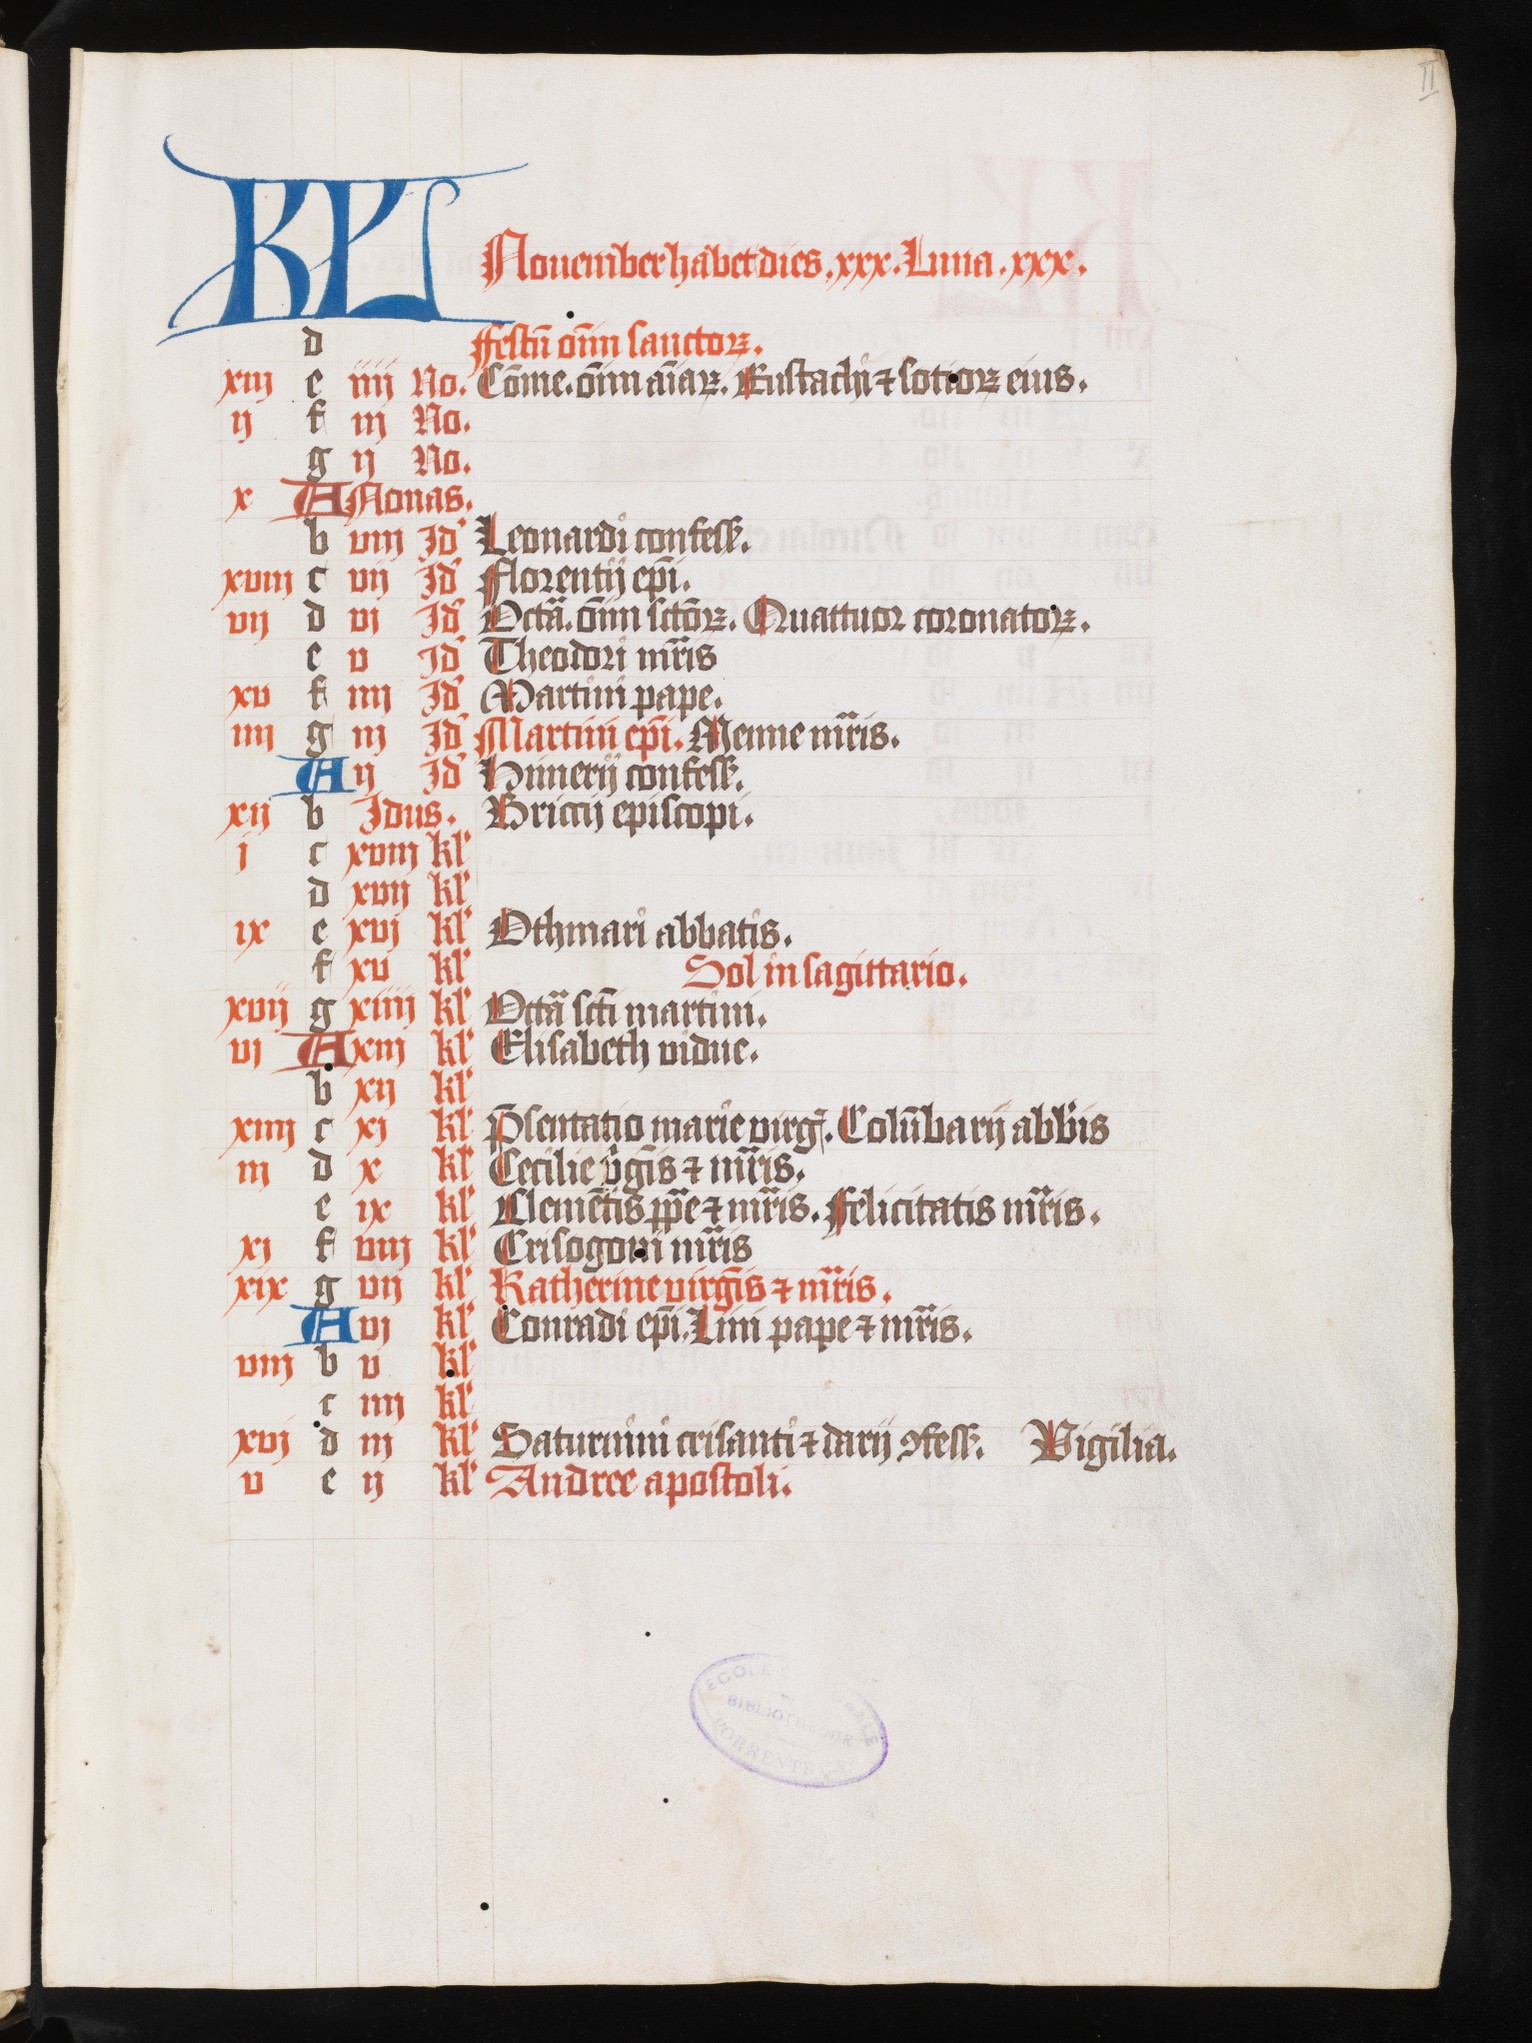 II
KL Nouember habet dies .xxx. Luna .xxx.
d Festū om̄i sanctoꝝ.
xiij e iiij No. Cōme. om̄i aīaꝝ. Eustachij ⁊ sotioꝝ eius.
ij f iij No.
g ij No.
x A Nonas.
b viij Id Leonardi confess.
xviij c vij Id Florentij ep̄i.
vij d vj Id Octā. om̄i sctōꝝ. Quattuor coronatoꝝ.
e v Id Theodori mr̄is
xv f iiij Id Martini pape.
iiij g iij Id Martini ep̄i. Menne mr̄is.
A ij Id Himerij confess.
xij b Idus. Brictij episcopi.
j c xviij kl
d xvij kl
ix e xvj kl Othmari abbatis.
f xv kl Sol in sagittario.
xvij g xiiij kl Octā sctī martini.
vj A xiij kl Elisabeth vidue.
b xij kl
xiiij c xj kl P̄sentatio marie virg. Colūbarij abb̄is
iij d x kl Cecilie v̇gīs ⁊ mr̄is.
e ix kl Clemētis pp̄e ⁊ mr̄is. Felicitatis mr̄is.
xj f viij kl Crisogoni mr̄is
xix g vij kl Katherine virgīs ⁊ mr̄is.
A vj kl Conradi ep̄i. Lini pape ⁊ mr̄is.
viij b v kl
c iiij kl
xvj d iij kl Saturnini crisanti ⁊ darij ꝯfess. Vigilia.
v e ij kl Andree apostoli.
BIBLIOTHEQUE
PORRENTRUY